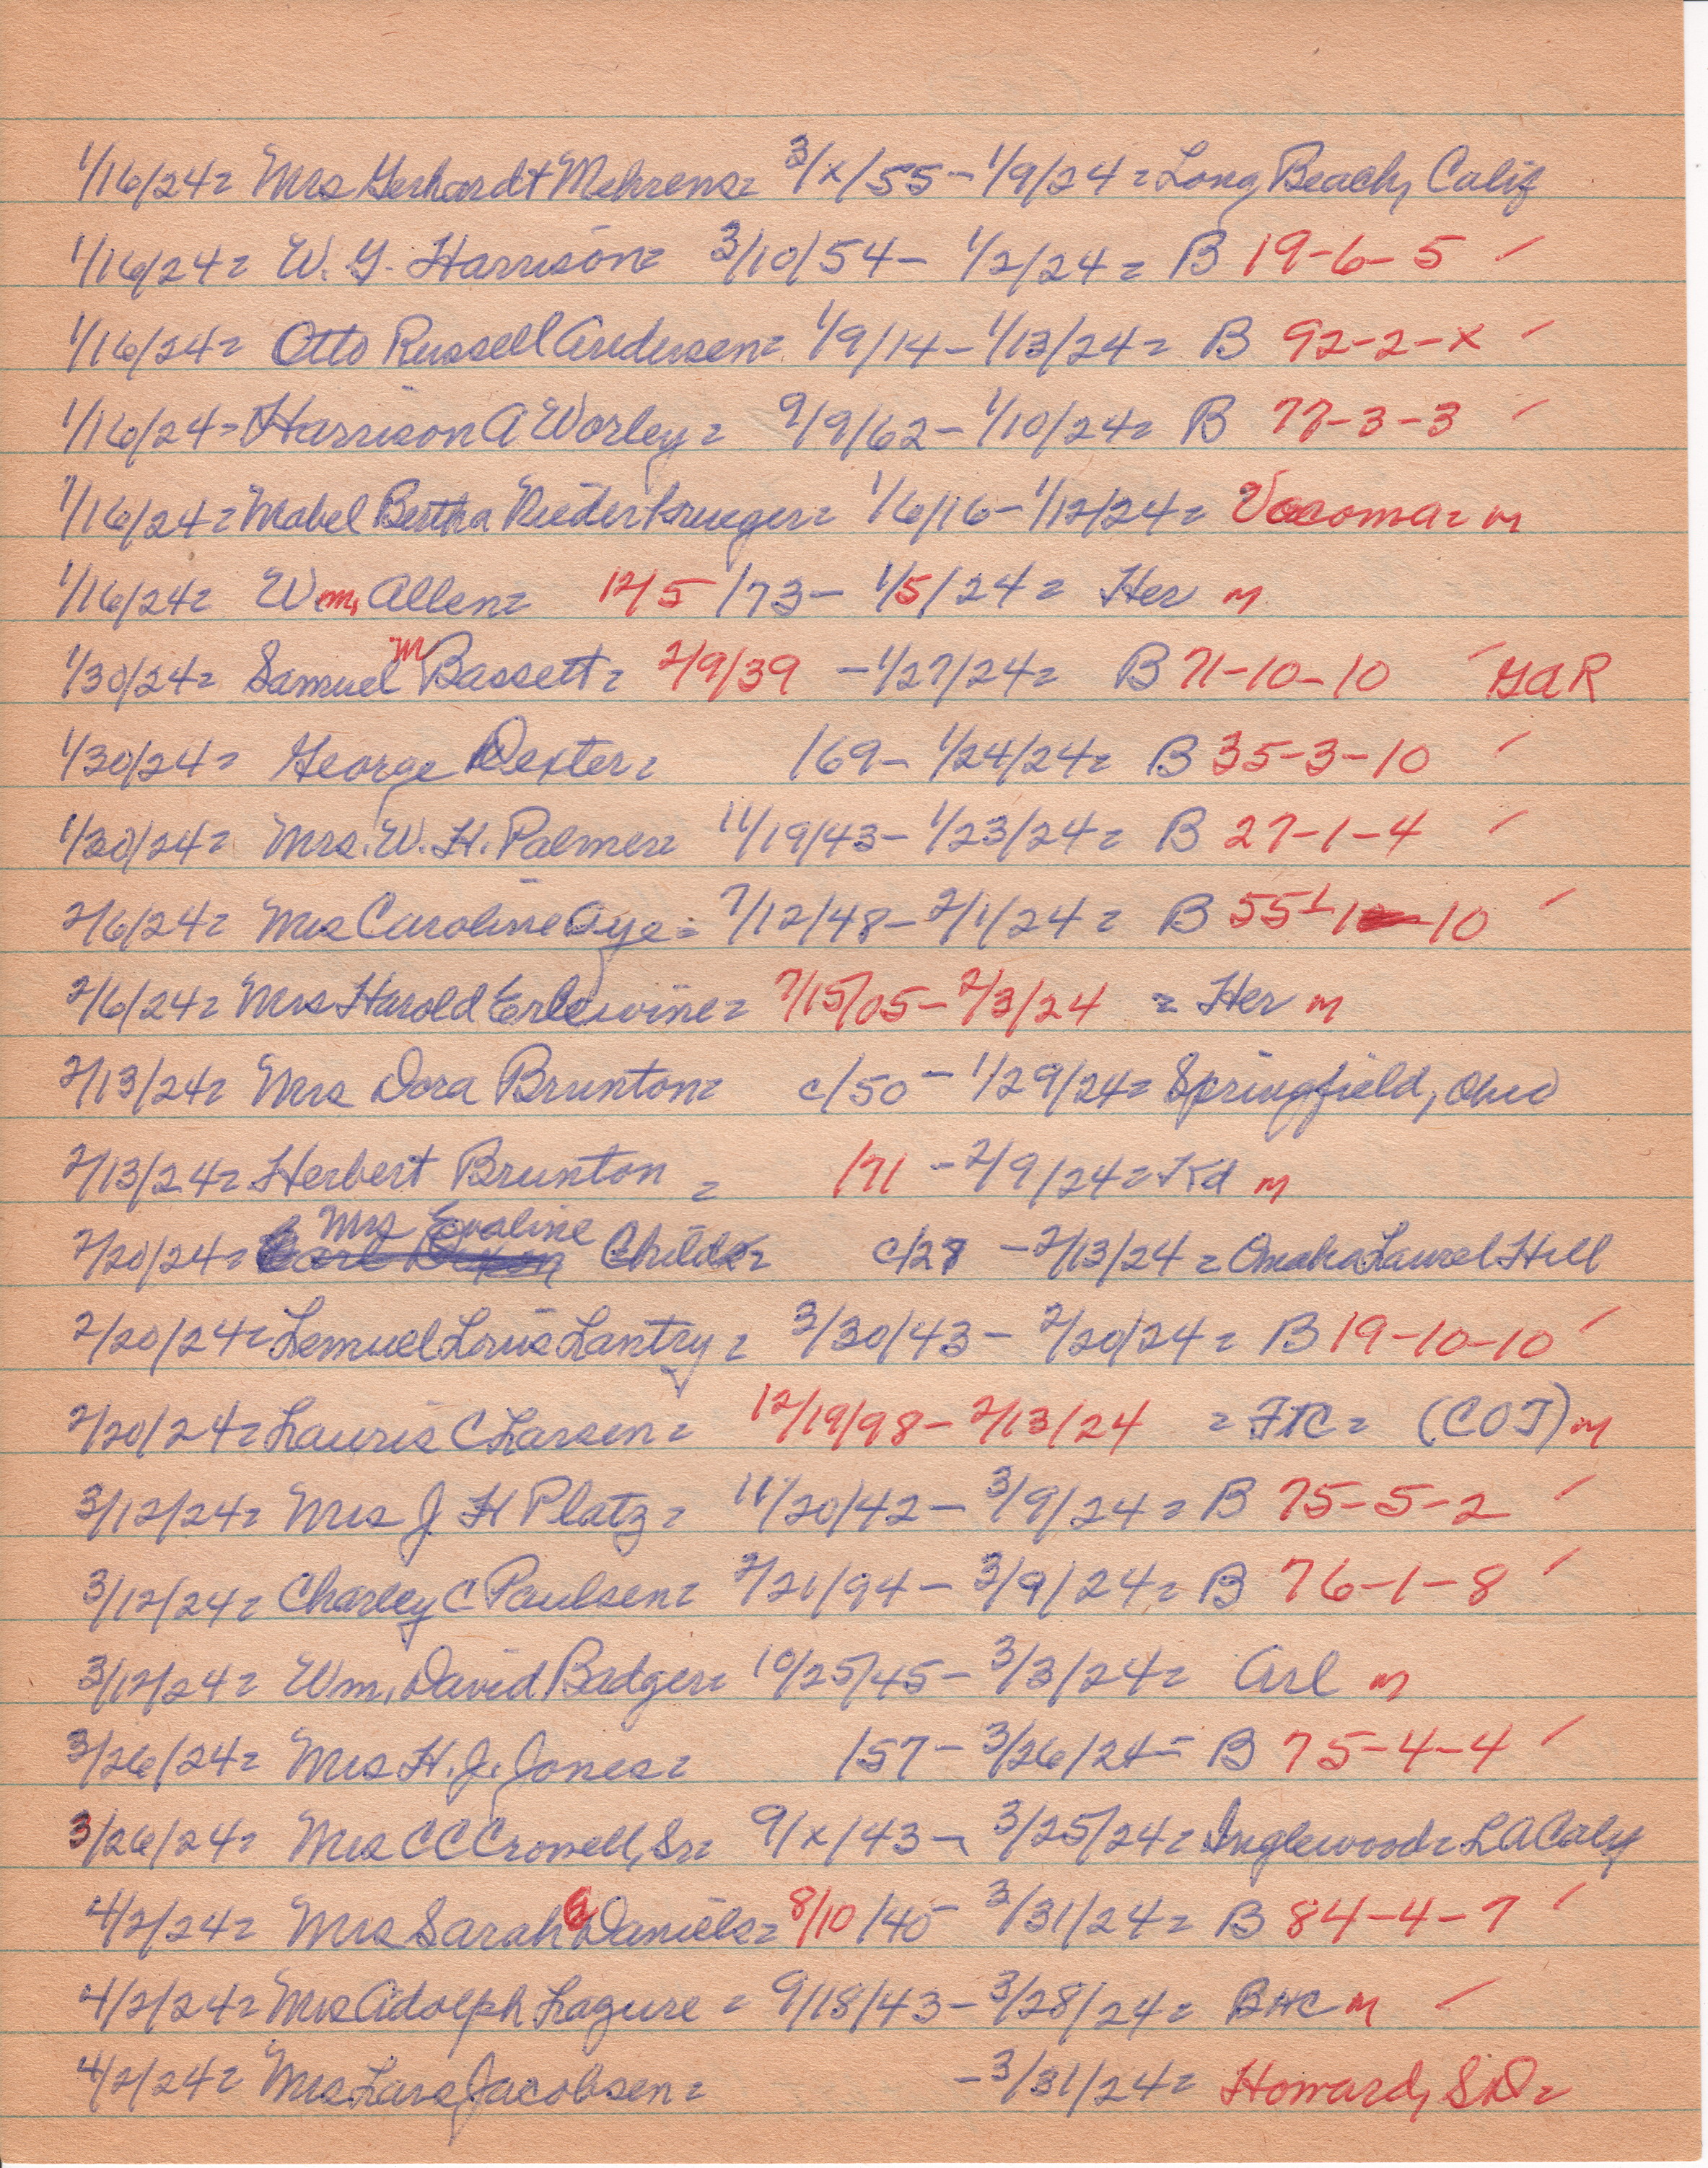 1/16/24= Mrs Gerhardt Mehrens= 3/x/55 - 1/9/24 = Long Beach, Calif
1/16/24= W. G. Harrison= 3/10/54 - 1/2/24 = B 19-6-5 ✓
1/16/24= Otto Russell Andersen= 1/9/14 - 1/13/24 = B 92-2-x ✓
1/16/24= Harrison A Worley= 9/9/62 - 1/10/24= B 77-3-3 ✓
1/16/24= Mabel Bertha Niederkrueger= 1/6/16 - 1/12/24= Vacoma= m
1/16/24= Wm, Allen= 12/5/73 - 1/5/24= Her m
1/30/24= Samuel M Bassett= 2/9/39 - 1/27/24= B 71-10-10 ✓ GAR
1/30/24= George Dexter= /69 - 1/24/24= B 35-3-10 ✓
1/30/24= Mrs. W. H. Palmer= 11/19/43 - 1/23/24= B 27-1-4 ✓
2/6/24= Mrs Caroline Aye= 7/12/48 - 2/1/24= B 55-1-10 ✓
2/6/24= Mrs Harold Erlewine= 7/15/05 - 2/3/24 = Her m
2/13/24= Mrs Dora Brunton= c/50 - 1/29/24= Springfield, Ohio
2/13/24= Herbert Brunton = /71 - 2/9/24= Kd m
2/20/24= Mrs Evaline Childs= c/27 - 2/13/24= Omaha Laurel Hill
2/20/24= Lemuel Louis Lantry= 3/30/43 - 2/20/24= B 19-10-10 ✓
2/20/24= Lauris C Larsen= 12/19/98 - 2/13/24 = FTC= (COJ) m
3/12/24= Mrs J H Platz= 11/20/42 - 3/9/24= B 75-5-2 ✓
3/12/24= Charley C Paulsen= 2/21/94 - 3/9/24= B 76-1-8 ✓
3/12/24= Wm, David Badger= 10/25/45 - 3/3/24= Arl m
3/26/24= Mrs H. J. Jones= /57 - 3/26/24= B 75-4-4 ✓
3/26/24= Mrs C C Crowell, Sr= 9/x/43 - 3/25/24= Inglewood= LA Calif
4/2/24= Mrs Sarah Daniels= 8/10/40 - 3/31/24= B 84-4-7 ✓
4/2/24= Mrs Adolph Lagure = 9/18/43 - 3/28/24= BHC m ✓
4/2/24= Mrs Lars Jacobsen= - 3/31/24= Howard, SD=